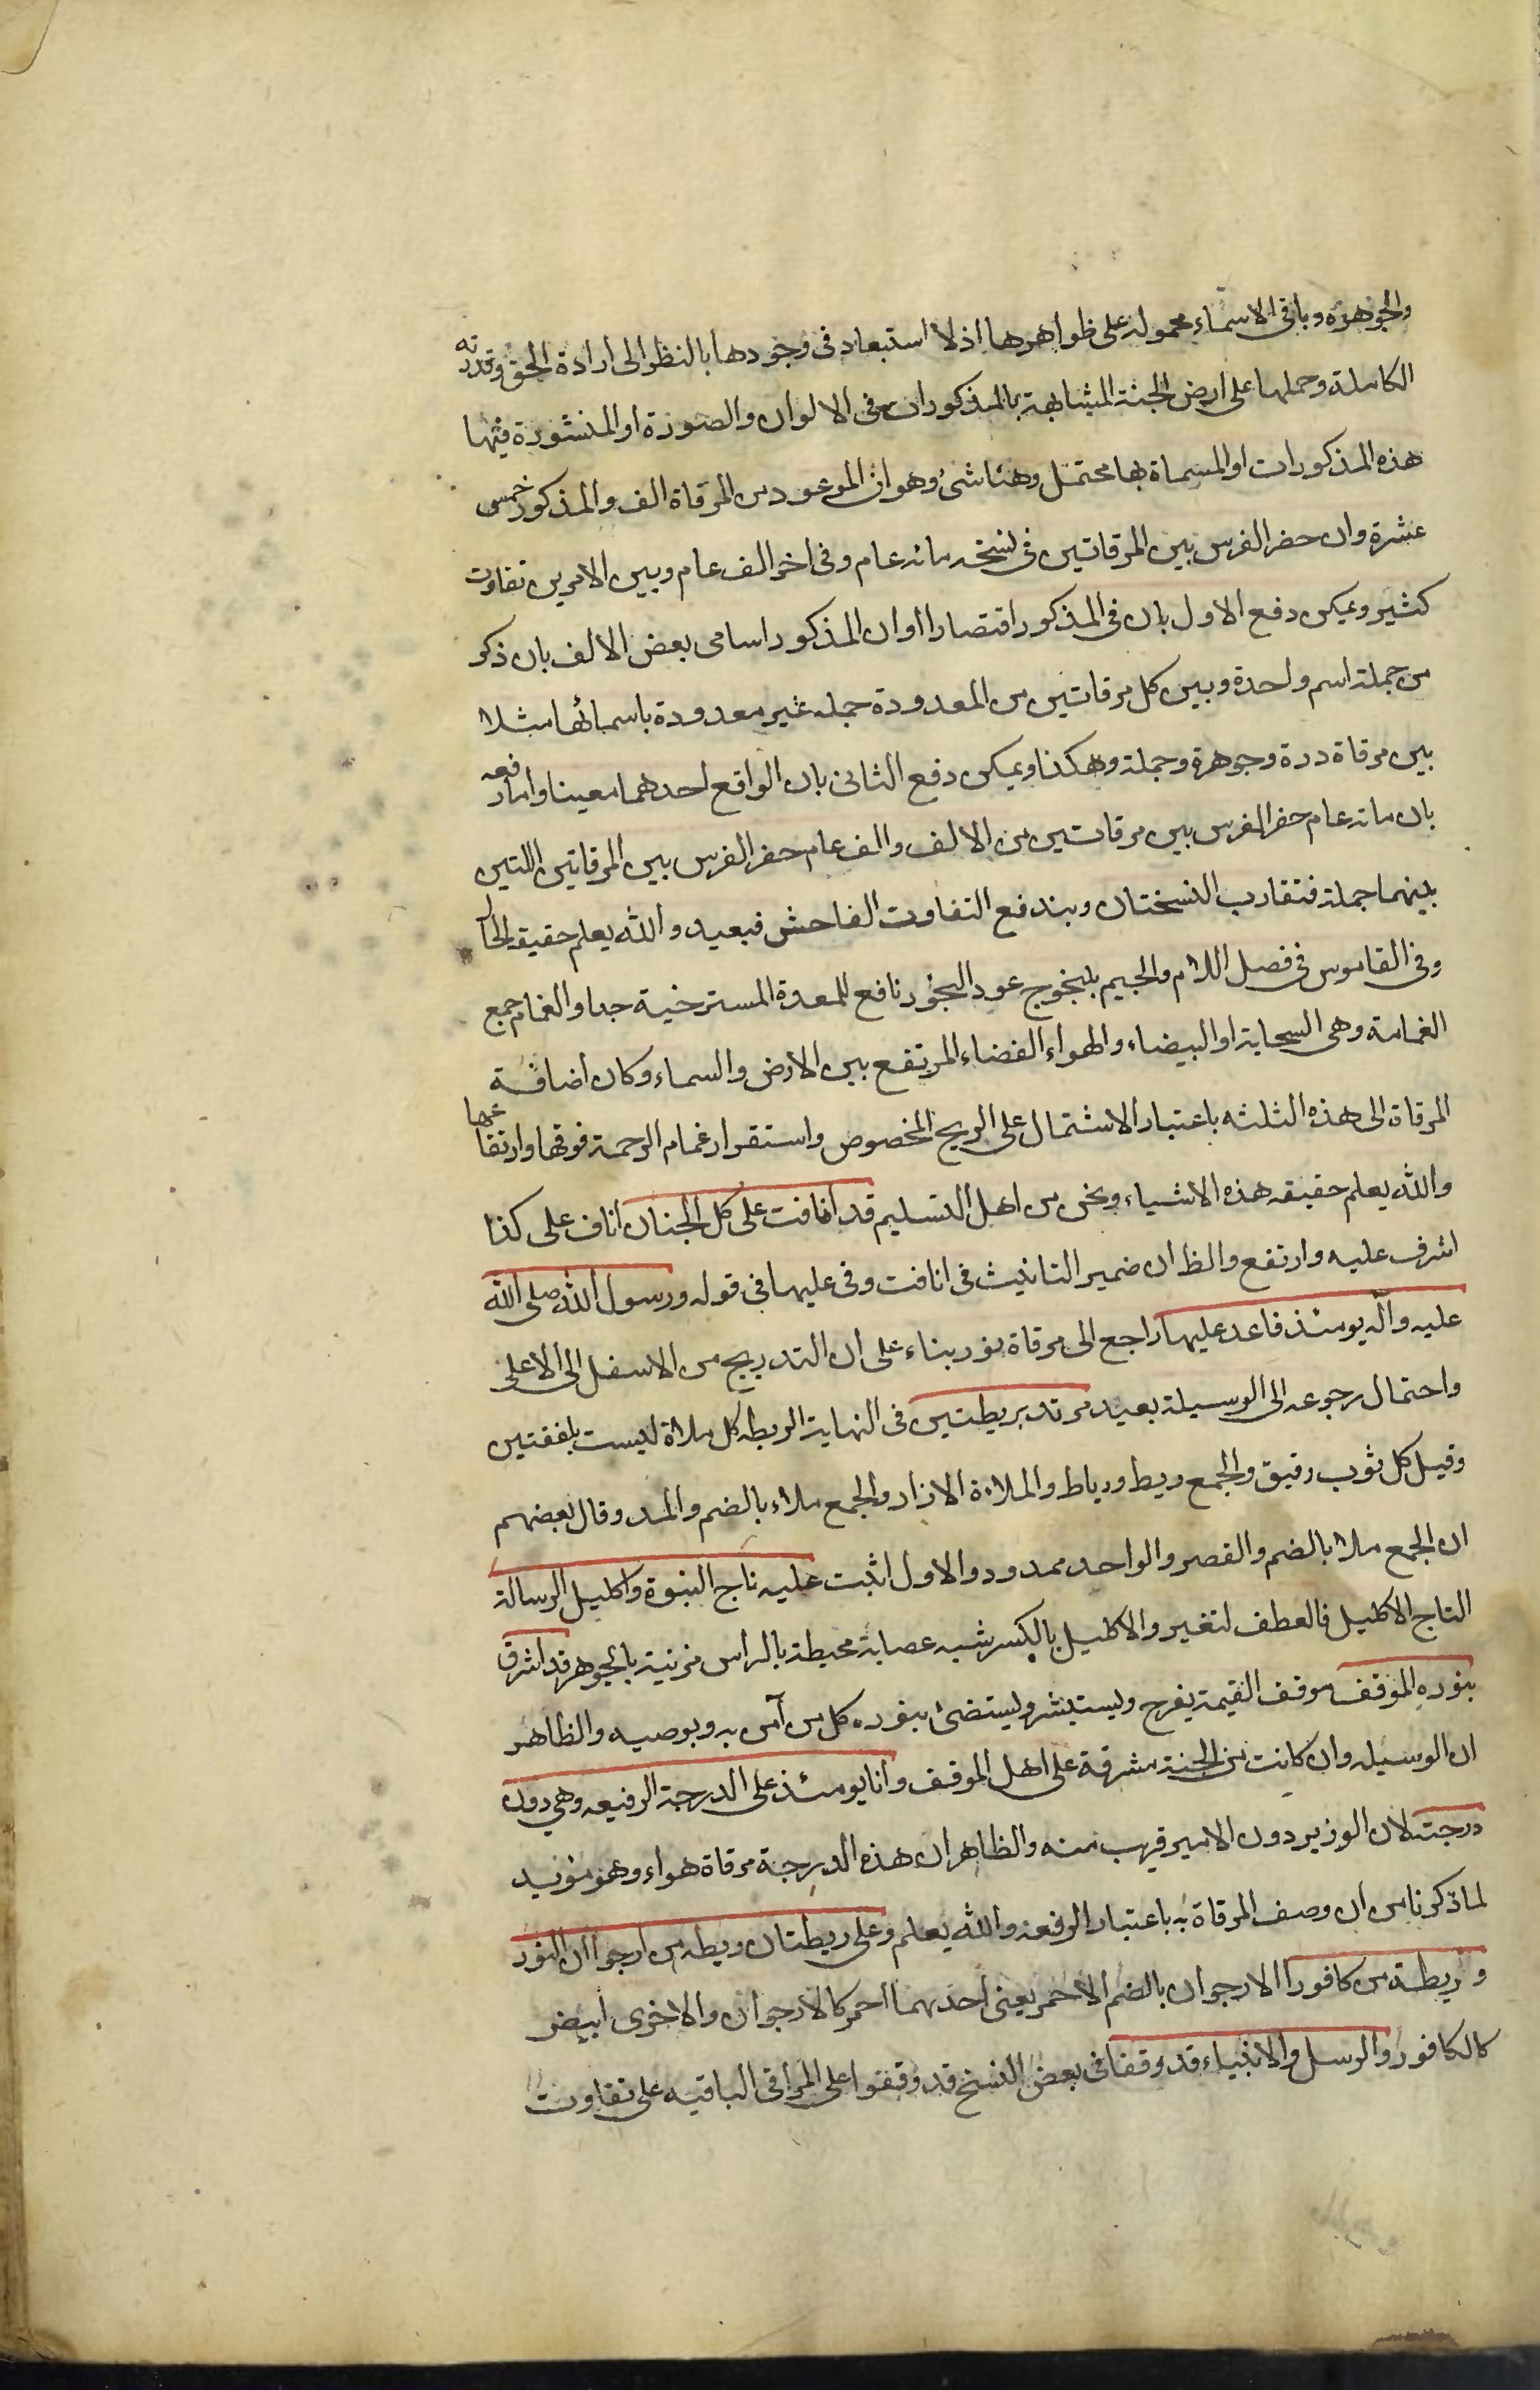 والجوهره وباقى الاسماء محموله على ظواهرها اذ لا استبعاد فى وجودها بالنظر الى ارادة الحق وقدرته
الكاملة وحملها على ارض الجنة المشابهة بالمذكورات فى الالوان والصورة او المنشورة فيها
هذه المذكورات او المسماة بها محتمل وهنا شئ وهو ان الموعود من المرقاة الف والمذكور خمس
عشرة وان حضر الفرس بين المرقاتين فى نسخه مائه عام وفى اخر الف عام وبين الامرين تفاوت
كثير ويمكن دفع الاول بان فى المذكور اقتصارا او ان المذكور اسامى بعض الالف بان ذكر
من جملة اسم واحدة وبين كل مرقاتين من المعدودة جمله غير معدودة باسمائها مثلا
بين مرقاة درة وجوهرة وجملة وهكذا ويمكن دفع الثانى بان الواقع احدهما معينا واما رفعه
بان مائه عام حضر الفرس بين مرقاتين من الالف والف عام حضر الفرس بين المرقاتين اللتين
بينهما جملة فتقارب النسختان ويندفع التفاوت الفاحش فبعيد والله يعلم حقيقة الحال
وفى القاموس فى فصل اللام والجيم يلنجوج عود البخور نافع للمعدة المسترخية جدا والغمام جمع
الغمامة وهى السحابة او البيضاء والهواء الفضاء المرتفع بين الارض والسماء وكان اضافة
المرقاة الى هذه الثلثه باعتبار الاشتمال على الريح المخصوص واستقرار غمام الرحمة فوقها وارتفاعها
والله يعلم حقيقه هذه الاشياء ونحن من اهل التسليم قد انافت على كل الجنان اناف على كذا
اشرف عليه وارتفع والظ ان ضمير التانيث فى انافت وفى عليها فى قوله ورسول الله صلى الله
عليه وآله يومئذ قاعد عليها راجع الى مرقاة نور بناء على ان التدريج من الاسفل الى الاعلى
واحتمال رجوعه الى الوسيلة بعيد مرتد بريطتين فى النهاية الريطه كل ملاة ليست بلفقتين
وقيل كل ثوب رقيق والجمع ريط ورياط والملاءة الازار والجمع ملاء بالضم والمد وقال بعضهم
ان الجمع ملا بالضم والقصر والواحد ممدود والاول اثبت عليه تاج النبوة واكليل الرسالة
التاج الاكليل فالعطف لتفسير والاكليل بالكسر شبه عصابة محيطة بالراس مزينة بالجوهر قد اشرق
بنوره الموقف موقف القيمة يفرح ويستبشر ويستضئ بنوره كل من آمن به وبوصيه والظاهر
ان الوسيله وان كانت من الجنة مشرفة على اهل الموقف وانا يومئذ على الدرجة الرفيعه وهى دون
درجته لان الوزير دون الامير قريب منه والظاهر ان هذه الدرجة مرقاة هواء وهو مؤيد
لما ذكرنا من ان وصف المرقاة به باعتبار الرفعة والله يعلم وعلى ريطتان ريطه من ارجوان النور
وريطة من كافور الارجوان بالضم الاحمر يعنى احدهما احمر كالارجوان والاخرى ابيض
كالكافور والرسل والانبياء قد وقفا فى بعض النسخ قد وقفوا على المراقى الباقيه على تفاوت